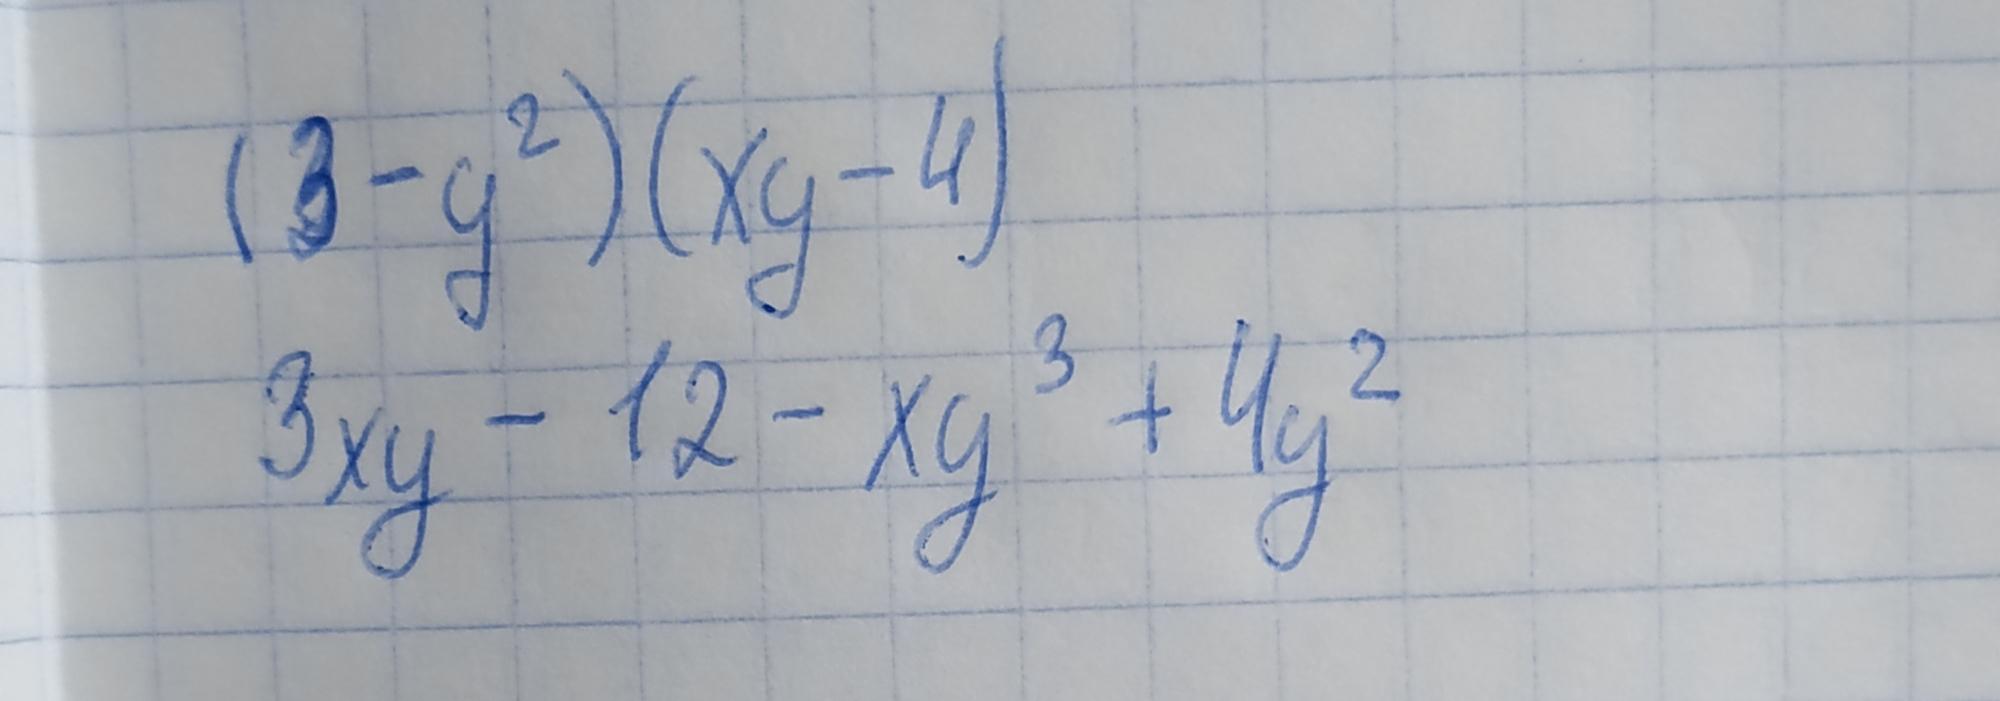 (3-y²)(xy-4)
3xy - 12 - xy³ + 4y²